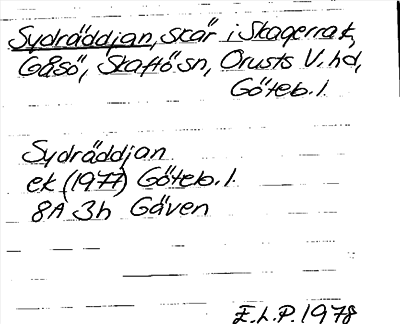 Sydräddjan, skär i Skagerrak,
Gåsö, Skaftö sn, Orusts V. hd,
Göteb. l.
Sydräddjan
ek (1977) Göteb. l.
8A 3h Gåven
E.L.P. 1978